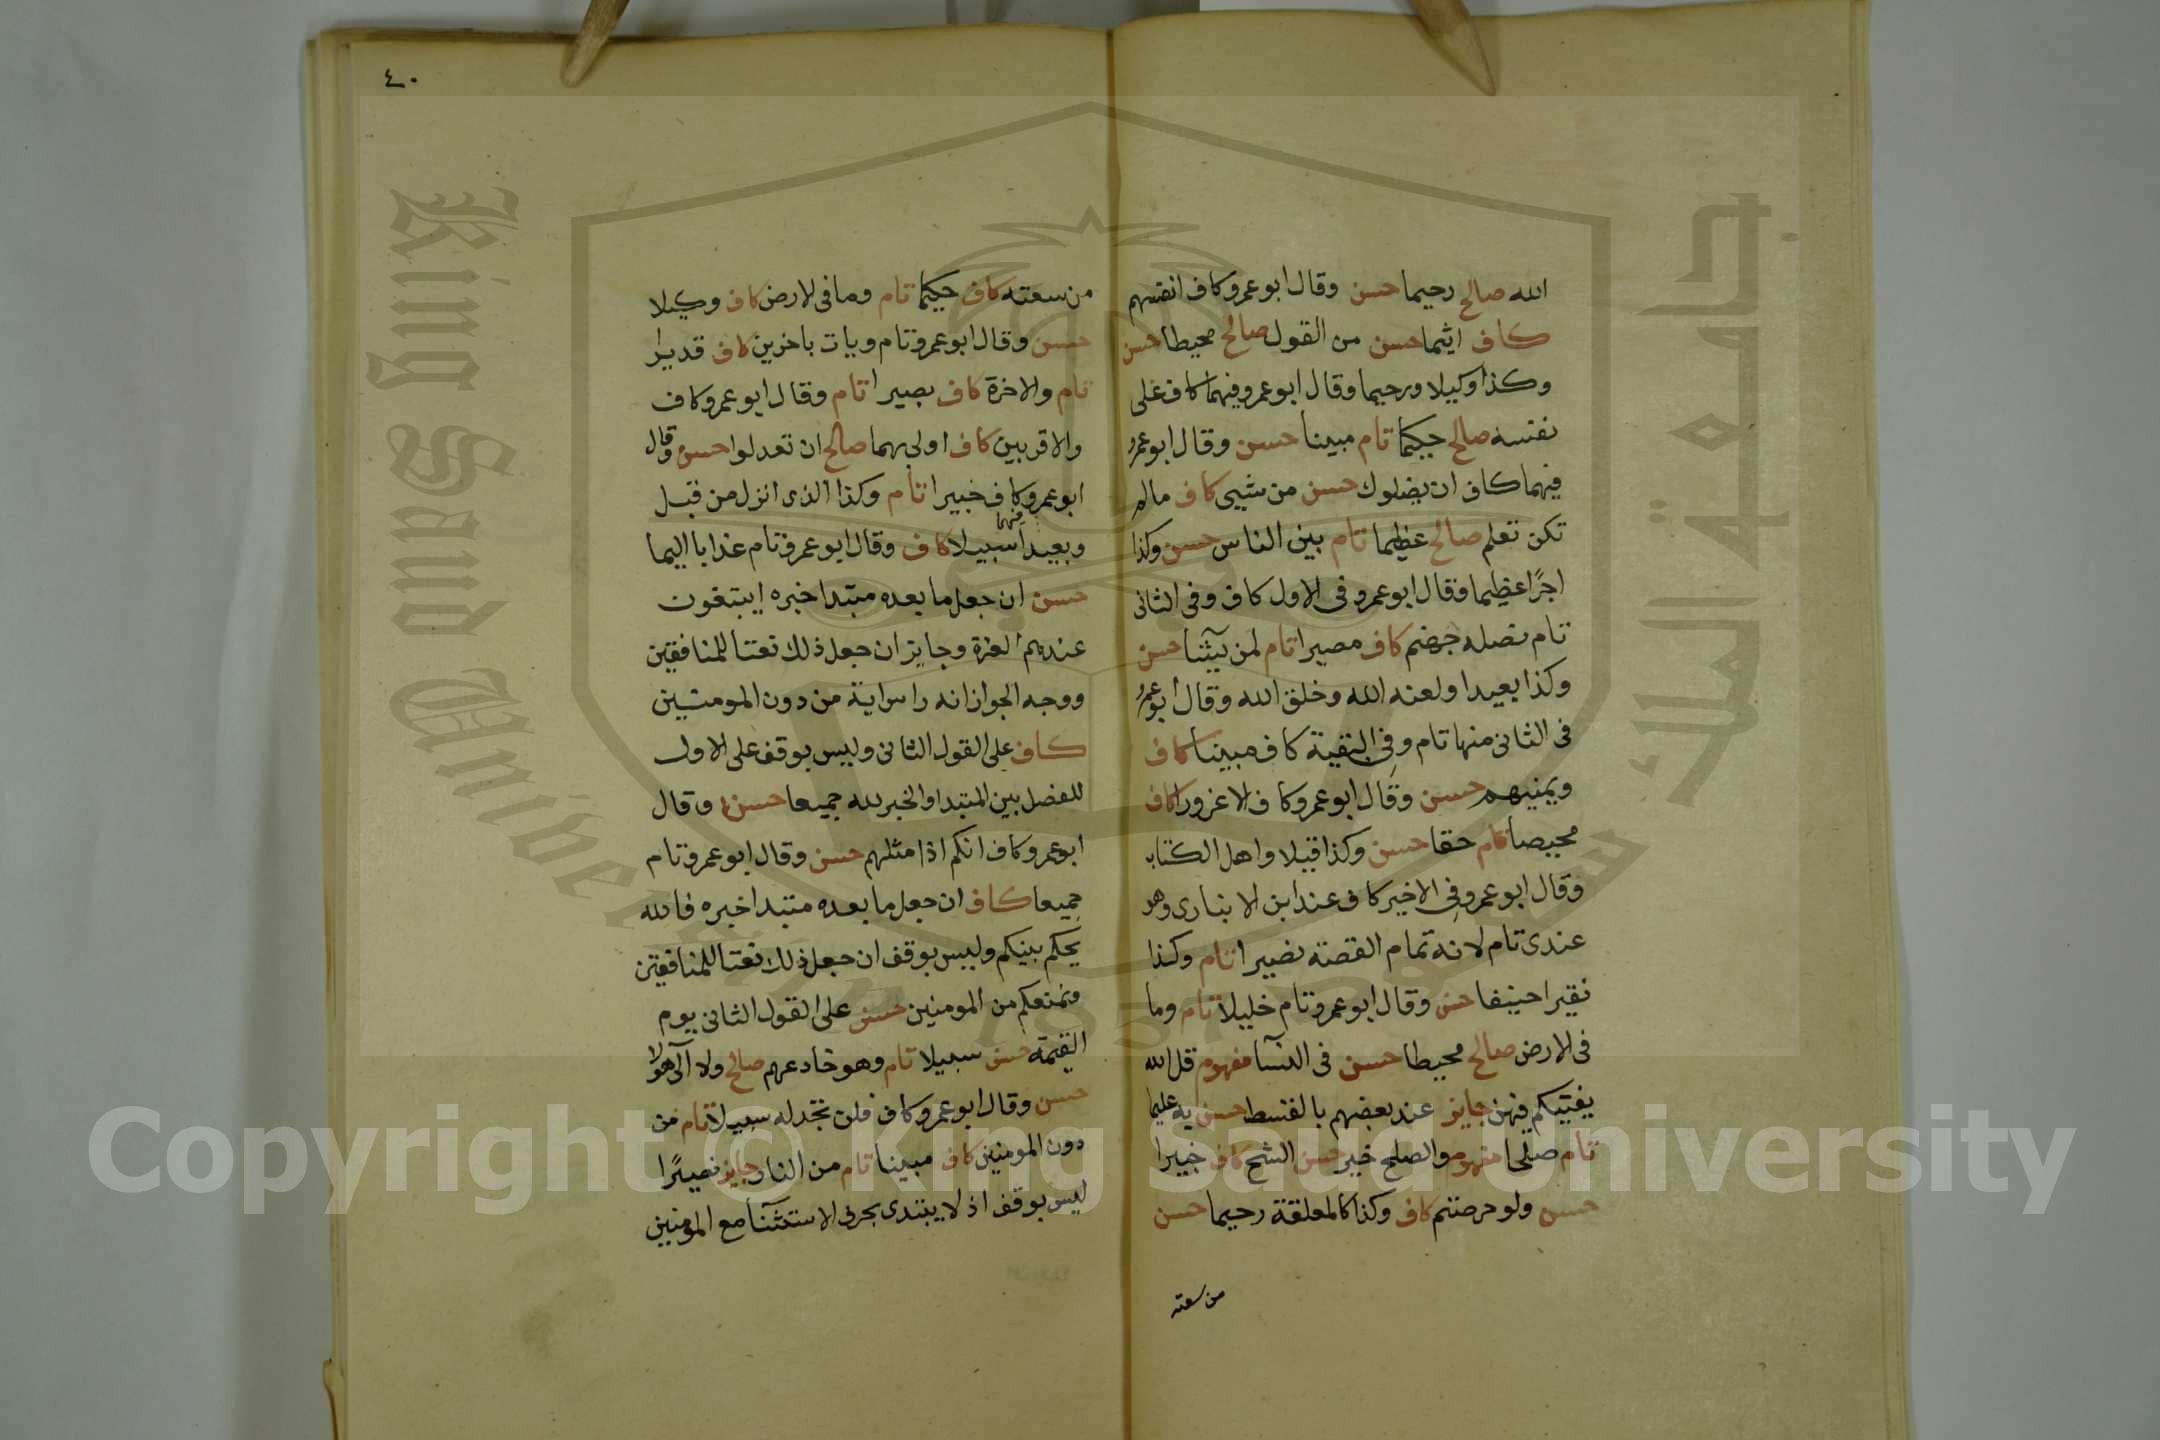 الله صالح رحيما حسن وقال ابوعمرو كاف انفسهم
كاف اثيما حسن من القول صالح محيطا حسن
وكذا وكيلا ورحيما وقال ابوعمرو فيهما كاف على
نفسه صالح حكيما تام مبينا حسن وقال ابوعمرو
فيهما كاف ان يضلوك حسن من شيى كاف مالم
تكن تعلم صالح عظيما تام بين الناس حسن وكذا
اجرًا عظيما وقال ابوعمرو فى الاول كاف وفى الثانى
تام نصله جهنم كاف مصيرا تام لمن يشآ حسن
وكذا بعيدا ولعنه الله وخلق الله وقال ابوعمرو
فى الثانى منها تام وفى البقية كاف مبينا كاف
ويمنيهم حسن وقال ابوعمرو كاف الا غرورا كاف
محيصا تام حقا حسن وكذا قيلا واهل الكتاب
وقال ابوعمرو فى الاخير كاف عند ابن الانبارى وهو
عندى تام لانه تمام القصة نصيرا تام وكذا
نقيرا حنيفا حسن وقال ابوعمرو تام خليلا تام وما
فى الارض صالح محيطا حسن فى النسآ مفهوم قل الله
يفتيكم فيهن جايز عند بعضهم بالقسط حسن به عليما
تام صلحا مفهوم والصلح خير حسن الشح كاف خبيرا
حسن ولو حرصتم كاف وكذا كالمعلقة رحيما حسن
من سعته
٤٠
من سعته كاف حكيما تام وما فى الارض كاف وكيلا
حسن وقال ابوعمرو تام ويات باخرين كاف قديرا
تام والاخرة كاف بصيرا تام وقال ابوعمرو كاف
والاقربين كاف اولى بهما صالح ان تعدلوا حسن وقال
ابوعمرو كاف خبيرا تام وكذا الذى انزل من قبل
وبعيدا سبيلا كاف فيهما وقال ابوعمرو تام عذابا اليما
حسن ان جعل ما بعده مبتدا خبره ايبتغون
عندهم العزة وجايز ان جعل ذلك نعتا للمنافقين
ووجه الجواز انه راس اية من دون المومنين
كاف على القول الثانى وليس بوقف على الاول
للفصل بين المبتدا والخبر لله جميعا حسن وقال
ابوعمرو كاف انكم اذا مثلهم حسن وقال ابوعمرو تام
جميعا كاف ان جعل ما بعده مبتدا خبره فالله
يحكم بينكم وليس بوقف ان جعل ذلك نعتا للمنافقين
ونمنعكم من المومنين حسن على القول الثانى يوم
القيمة حسن سبيلا تام وهو خادعهم صالح ولا الى هولا
حسن وقال ابوعمرو كاف فلن تجد له سبيلا تام من
دون المومنين كاف مبينا تام من النار جايز نصيرًا
ليس بوقف اذ لا يبتدى بحرف الاستثنآ مع المومنين
King Saud University
جامعة الملك سعود
1957
Copyright © King Saud University